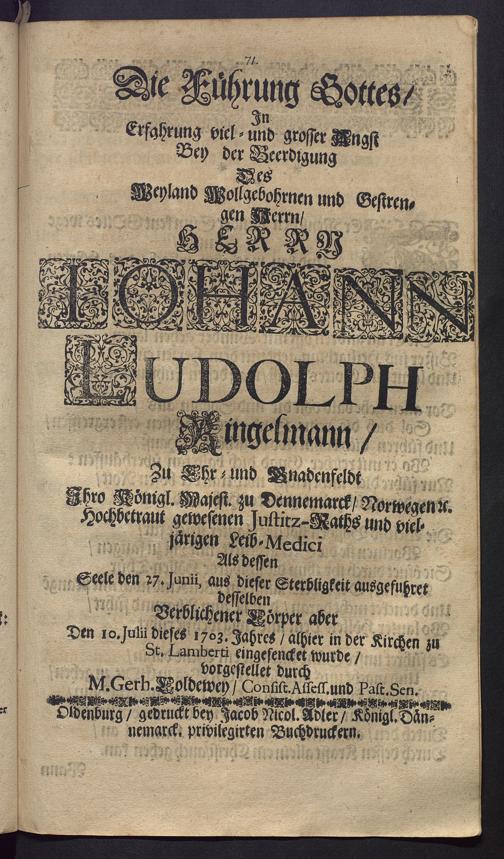 71.
Die Führung Gottes/
In
Erfahrung viel- und grosser Angst
Bey der Beerdigung
Des
Weyland Wollgebohrnen und Gestren-
gen Herrn/
HERRN
IOHANN
LUDOLPH
Ringelmann/
Zu Ehr- und Gnadenfeldt
Ihro Königl. Majest. zu Dennemarck/ Norwegen ꝛc.
Hochbetraut gewesenen Justitz-Raths und viel-
järigen Leib-Medici
Als dessen
Seele den 27. Junii, aus dieser Sterbligkeit ausgefuhret
desselben
Verblichener Cörper aber
Den 10. Julii dieses 1703. Jahres/ alhier in der Kirchen zu
St. Lamberti eingesencket wurde/
vorgestellet durch
M. Gerh. Coldewey/ Consist. Assess. und Past. Sen.
Oldenburg/ gedruckt bey Jacob Nicol. Adler/ Königl. Dän-
nemarck. privilegirten Buchdruckern.